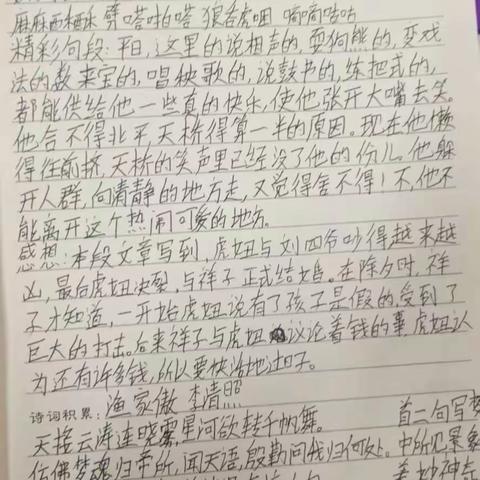 麻麻西栖 劈嗒啪嗒 狼吞虎咽 嘀嘀咕咕
精彩句段:平日,这里的说相声的,耍狗熊的,变戏
法的,数来宝的,唱秧歌的,说鼓书的,练把式的,
都能供给他一些真的快乐,使他张开大嘴去笑。
他舍不得北平,天桥得算一半的原因。现在他懒
得往前挤,天桥的笑声里已经没了他的份儿。他躲
开人群,向清静的地方走,又觉得舍不得!不,他不
能离开这个热闹可爱的地方。
感想:本段文章写到,虎妞与刘四爷吵得越来越
凶,最后虎妞决裂,与祥子正式结婚。在除夕时,祥
子才知道,一开始虎妞说有了孩子是假的,受到了
巨大的打击。后来祥子与虎妞议论着钱的事,虎妞认
为还有许多钱,所以要快活地过日子。
诗词积累:渔家傲 李清照
天接云涛连晓雾,星河欲转千帆舞。 首二句写梦
仿佛梦魂归帝所,闻天语,殷勤问我归何处。中所见景象
美妙神奇